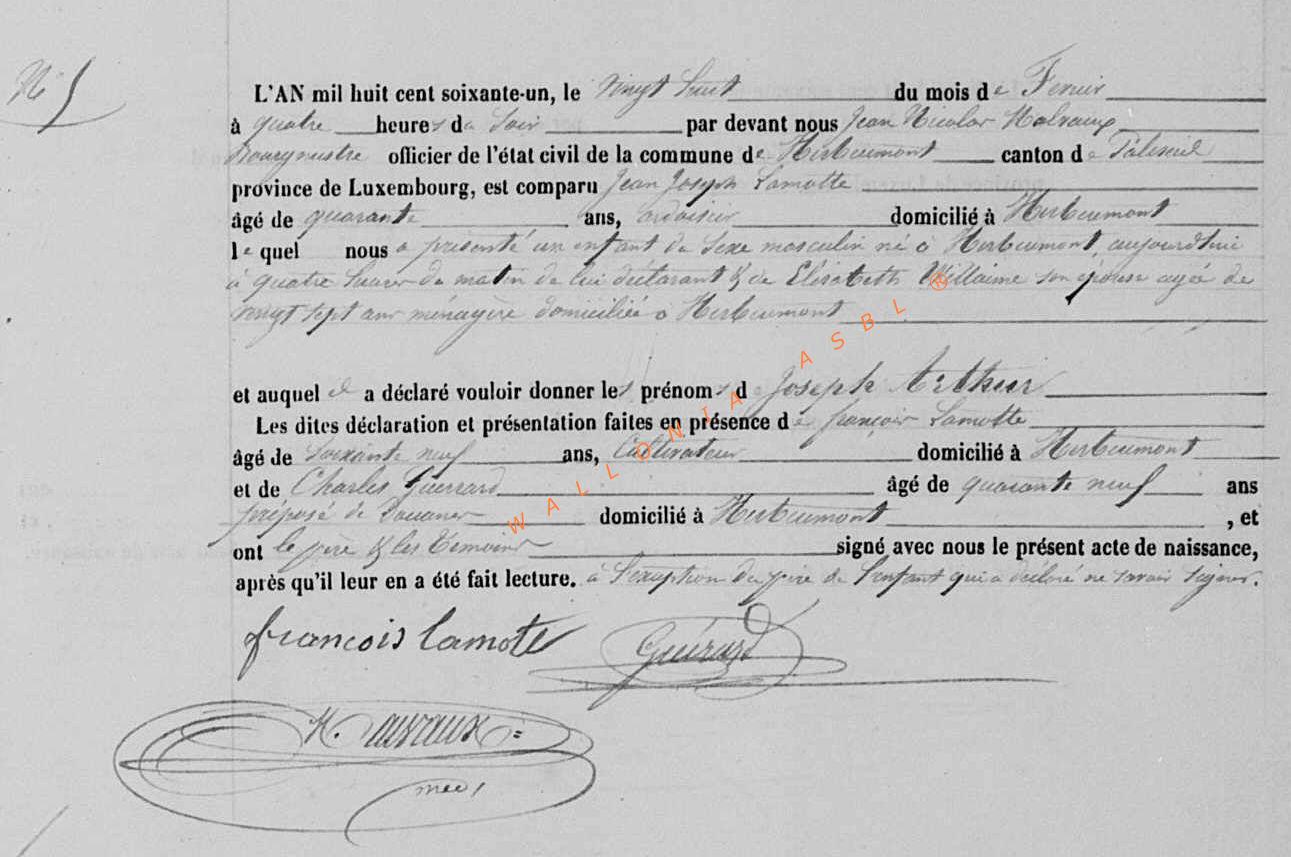 N° 5
L'AN mil huit cent soixante-un, le vingt huit du mois de Fevrier
à quatre heures du Soir par devant nous Jean Nicolas
Bourgmestre officier de l'état civil de la commune de Herbeumont canton de Paliseul
province de Luxembourg, est comparu Jean Joseph Lamotte
âgé de quarante ans, ardoisier domicilié à Herbeumont
lequel nous a présenté un enfant du sexe masculin né à Herbeumont, aujourdhui
à quatre heures du matin de lui déclarant & de Elisabeth Willaime son épouse agée de
vingt sept ans ménagère domiciliée à Herbeumont
et auquel il a déclaré vouloir donner les prénoms de Joseph Arthur
Les dites déclaration et présentation faites en présence de françois Lamotte
âgé de soixante neuf ans, Cultivateur domicilié à Herbeumont
et de Charles Guerrard âgé de quarante neuf ans
préposé de Douanes domicilié à Herbeumont , et
ont le père & les témoins signé avec nous le présent acte de naissance,
après qu'il leur en a été fait lecture. à l'exception du père de l'enfant qui a déclaré ne savoir signer.
francois lamote Guérard
WALLONIA ASBL ®